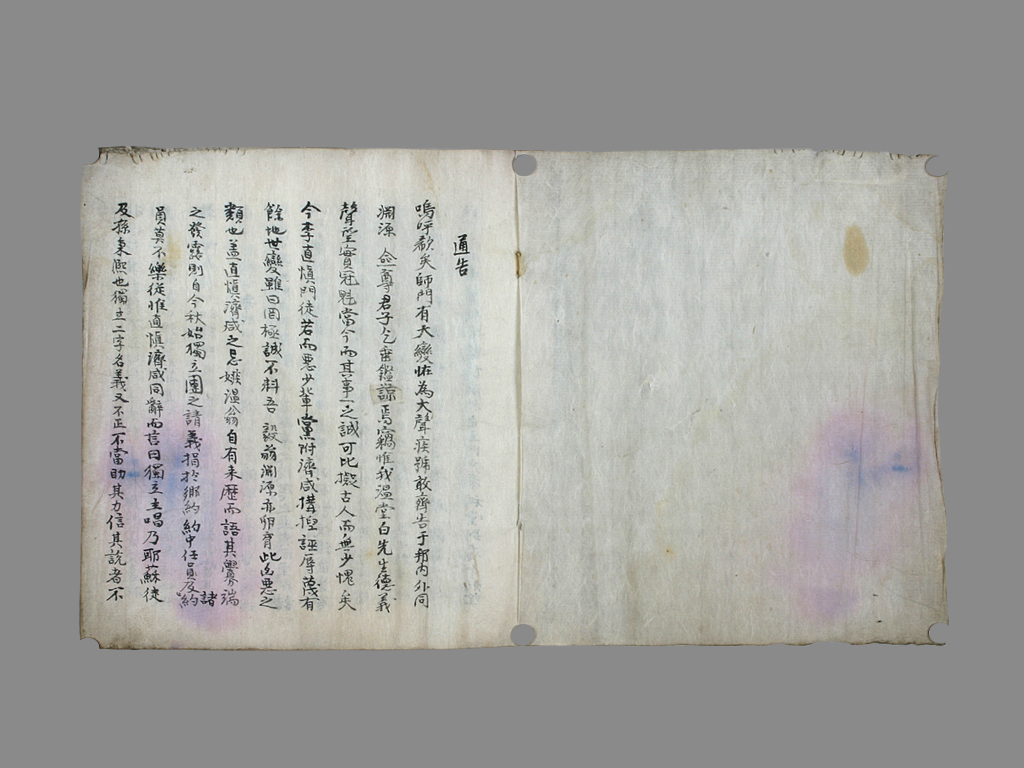 通告
嗚呼歎矣師門有大變怪為大聲疾號敢齊告于邦內外同
淵源 僉尊君子乞審鑑諒焉竊惟我溫堂白先生德義
聲望實冠魁當今而其事一之誠可比擬古人而無少愧矣
今李直愼門徒若而惡少輩黨附濟咸搆捏誣辱蔑有
餘地世變雖曰罔極誠不料吾 毅翁淵源亦卵育此凶惡之
類也盖直愼濟咸之忌嫉溫翁自有來歷而語其釁端
之發露則自今秋始獨立團之請義捐於鄉約約中任員及約諸
員莫不樂從惟直愼濟咸同辭而言曰獨立主唱乃耶蘇徒
及孫秉熙也獨立二字名義又不正不當助其力信其說者不